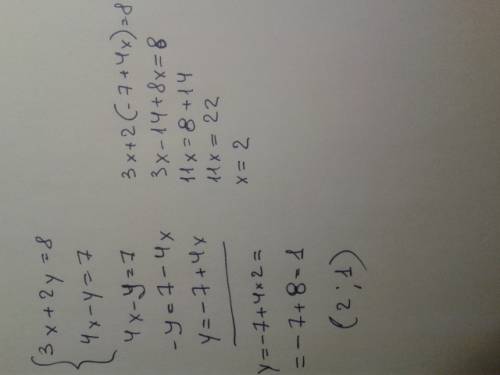 { 3x+2y=8
4x-y=7
4x-y=7
-y=7-4x
y=-7+4x
y=-7+4×2=
=-7+8=1
(2;1)
3x+2(-7+4x)=8
3x-14+8x=8
11x=8+14
11x=22
x=2